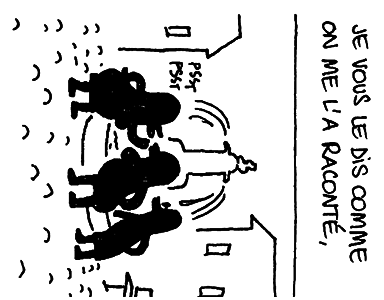 JE VOUS LE DIS COMME
ON ME L'A RACONTÉ,
PSST
PSST